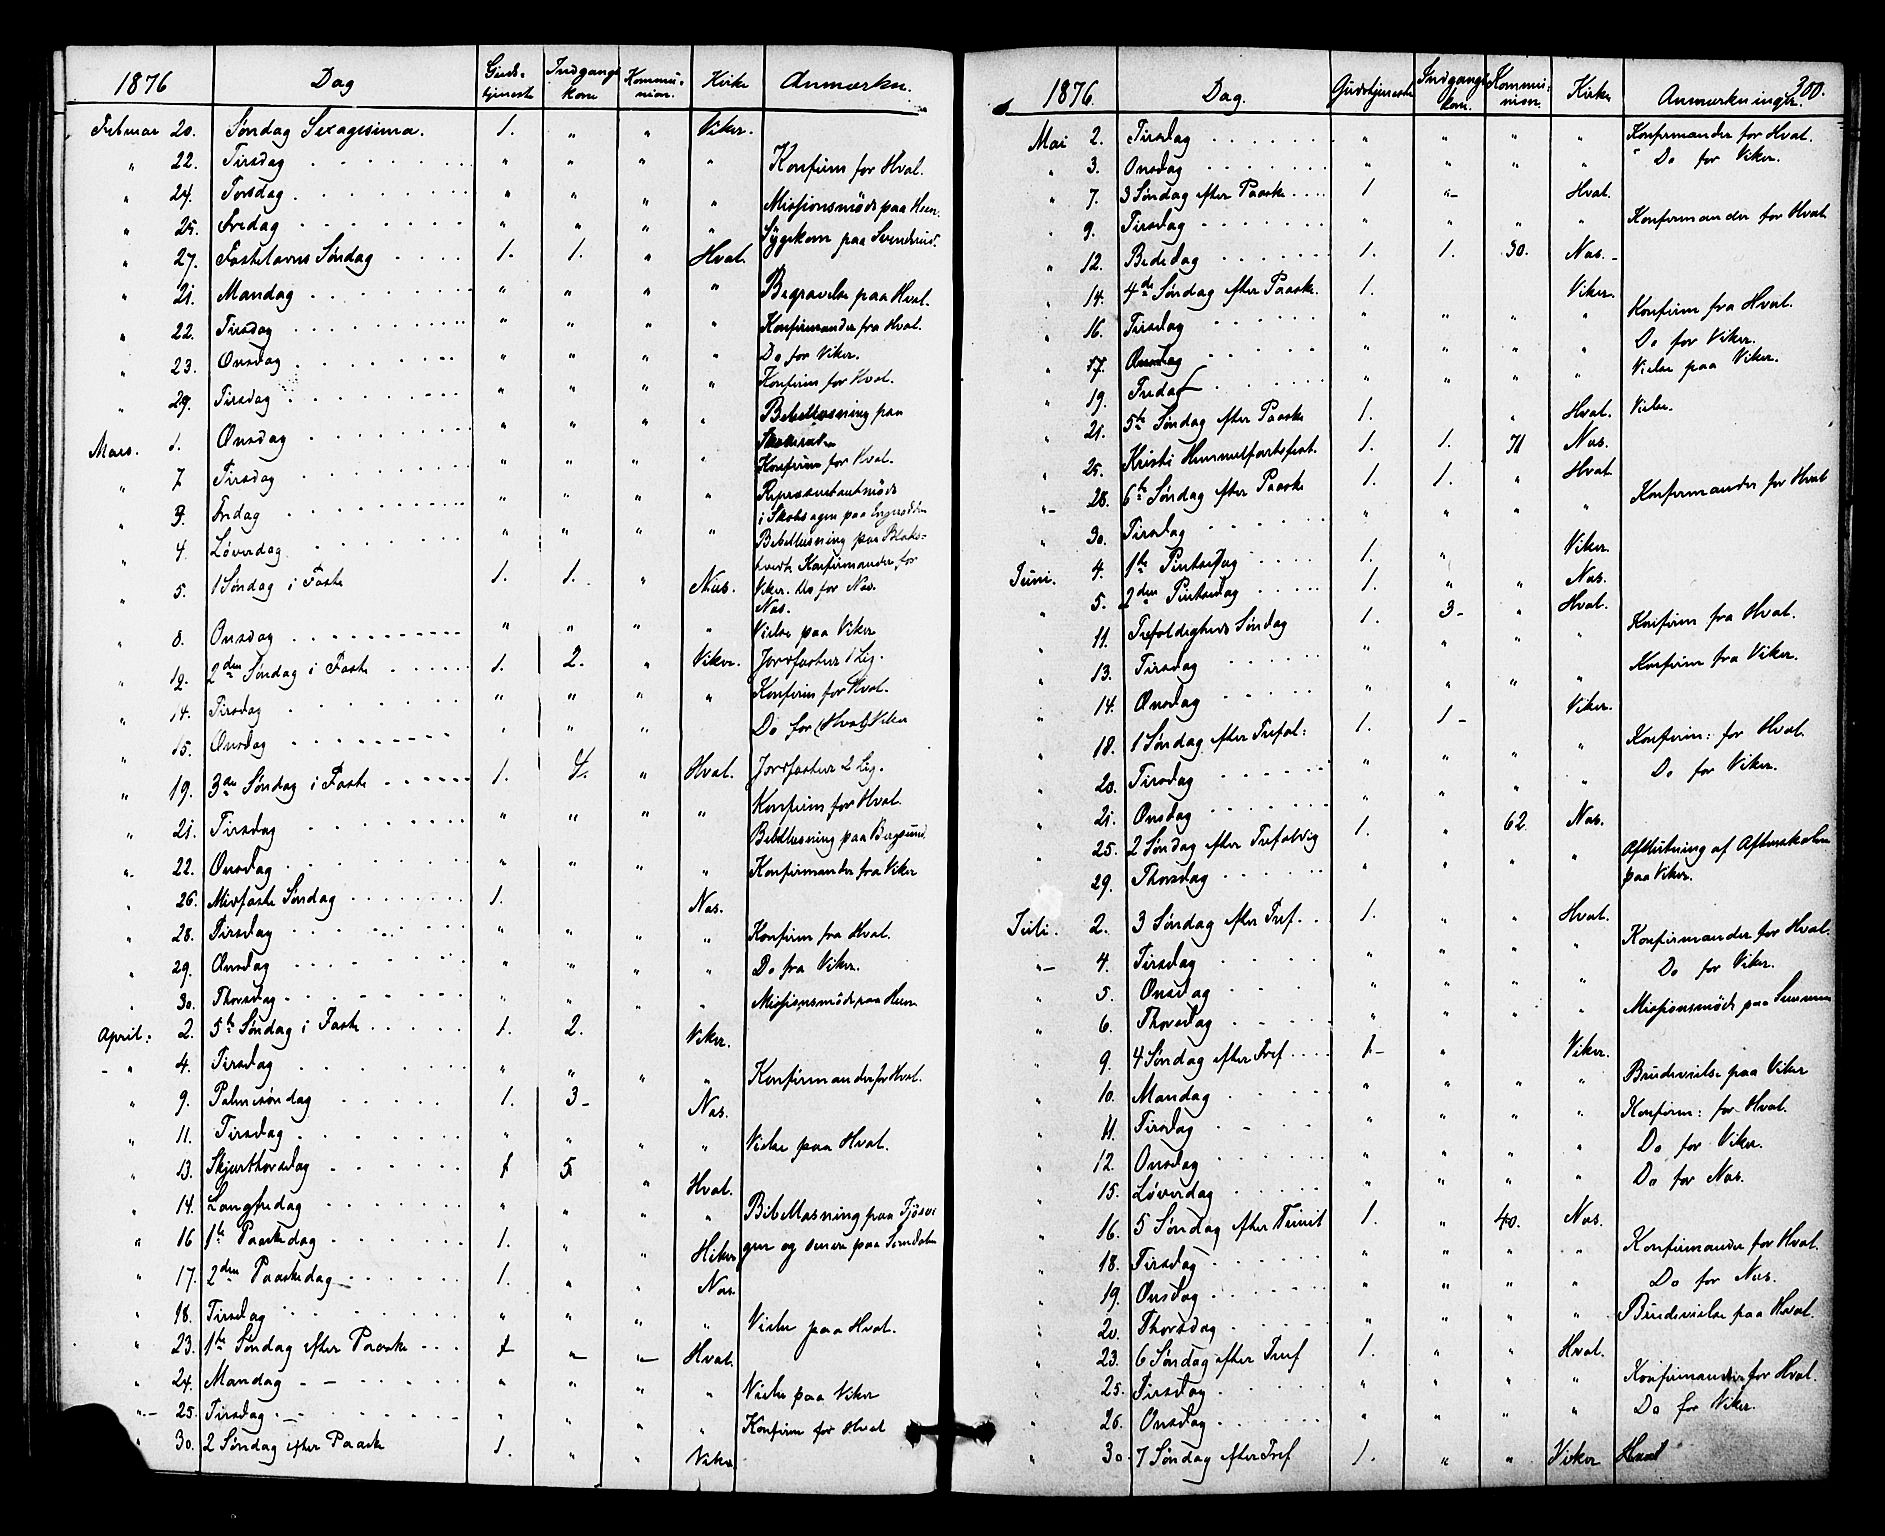 1876 Dag Guds-tjeneste Indgangs kone Kommu-nion. Kirke Anmærkn.
Februar 20. Søndag Sexagesima. 1. " " Viker.
" 22. Tirsdag " " " " Konfirm for Hval.
" 24. Torsdag " " " " Missionsmøde paa Hen.
" 25. Fredag " " " " Sygekom paa
" 27. Fastelavns Søndag 1. 1. " Hval.
" 21. Mandag " " " " Begravelse paa Hval.
" 22. Tirsdag " " " " Konfirmander fra Hval.
" 23. Onsdag " " " " Do for Viker.
" 29. Tirsdag " " " " Konfirm for Hval.
Mars. 1. Onsdag " " " " Bibellæsning paa
" 7. Tirsdag " " " " Konfirm for Hval.
" 3. Fredag " " " " Repræsentantmøde
i Skolesagen paa
" 4. Løverdag " " " " Bibellæsning paa
Konfirmander for
" 5. 1 Søndag i Faste 1. 1. " Næs. Viker. Do for Nas.
Nas.
" 8. Onsdag " " " " Vielse paa Viker
" 12. 2den Søndag i Faste 1. 2. " Viker. Jordfæstet 1 Lig.
" 14. Tirsdag " " " " Konfirm for Hval.
" 15. Onsdag " " " Do for (Hval) Viker
" 19. 3die Søndag i Faste 1. 4. " Hval. Jordfæstet 2 Lig.
" 21. Tirsdag " " " " Konfirm for Hval.
Bibellæsning paa Bergsund.
" 22. Onsdag " " " " Konfirmander fra Viker
" 26. Midfaste Søndag 1. Nas.
" 28. Tirsdag " " " " Konfirm fra Hval.
" 29. Onsdag " " " " Do fra Viker.
" 30. Thorsdag " " " " Missionsmøde paa Heen
April: 2. 5te Søndag i Faste 1. 2. Viker.
" 4. Tirsdag " " " " Konfirmander for Hval.
" 9. Palmesøndag 1. 3 Nas.
" 11. Tirsdag " " " " Vielse paa Hval.
" 13. Skjærthorsdag 1 5 " Hval.
" 14. Langfredag " Bibellæsning paa
" 16 1te Paaskedag 1. " Hiker og senere paa
" 17. 2den Paaskedag 1. " " Nas
" 18. Tirsdag " " " " Vielse paa Hval.
" 23. 1te Søndag efter Paaske 1 " " Hval.
" 24. Mandag " " " " Vielse paa Viker
" 25. Tirsdag " " " " Konfirm for Hval
" 30. 2 Søndag efter Paaske 1. " " Viker
300.
1876. Dag. Gudstjeneste Indgangs kon. Kommu-nion. Kirke Anmærkninger.
Mai 2. Tirsdag " " " " Konfirmander for Hval.
" 3. Onsdag " " " " Do for Viker.
" 7. 3 Søndag efter Paaske 1 " Hval.
" 9. Tirsdag " " " " Konfirmander for Hval
" 12. Bededag 1. 1. 30. Nas.
" 14. 4de Søndag efter Paaske. 1. Viker.
" 16. Tirsdag " " " " Konfirm fra Hval.
" 17. Onsdag " " " " Do for Viker.
" 19. Fredag " " " " Vielse paa Viker.
" 21. 5te Søndag efter Paaske 1. " Hval. Vielse.
" 25. Kristi Himmelfartsfest. 1. 1. 71 Nas.
" 28. 6te Søndag efter Paaske 1. 1. " Hval
" 30. Tirsdag " " " " Konfirmander for Hval
Juni. 4. 1te Pintsedag 1. " Viker.
" 5. 2den Pintsedag 1. " " Nas.
" 11. Trefoldigheds Søndag 1. 3 " Hval.
" 13. Tirsdag " " " " Konfirm fra Hval.
" 14. Onsdag " " " " Konfirm fra Viker.
" 18. 1 Søndag efter Trefol: 1. 1 Viker.
" 20. Tirsdag " " " " Konfirm: for Hval.
" 21. Onsdag " " " Do for Viker.
" 25. 2 Søndag efter Trefoldig 1. " 62. Nas.
" 29. Thorsdag " " " " Afslutning af Aftenskolen
paa Viker.
Juli. 2. 3 Søndag efter Tref. 1. " " Hval.
" 4. Tirsdag " " " " Konfirmander for Hval.
" 5. Onsdag " " " " Do for Viker.
" 6. Thorsdag " " " " Missionsmøde paa
" 9. 4 Søndag efter Tref 1 " Viker.
" 10. Mandag " " " " Brudevielse paa Viker
" 11. Tirsdag " " " " Konfirm: for Hval.
" 12. Onsdag " " " Do for Viker.
" 15. Løverdag " " " " Do for Nas.
" 16. 5 Søndag efter Trinit 1. " 40. Nas.
" 18. Tirsdag " " " " Konfirmander for Hval.
" 19. Onsdag " " " " Do for Nas.
" 20. Thorsdag " " " " Brudevielse paa Hval.
" 23. 6 Søndag efter Tref 1. " " Hval.
" 25. Tirsdag " " " " Konfirmander for Hval.
" 26. Onsdag " " " " Do for Viker.
" 30. 7 Søndag efter Tref 1. " " Viker Hval